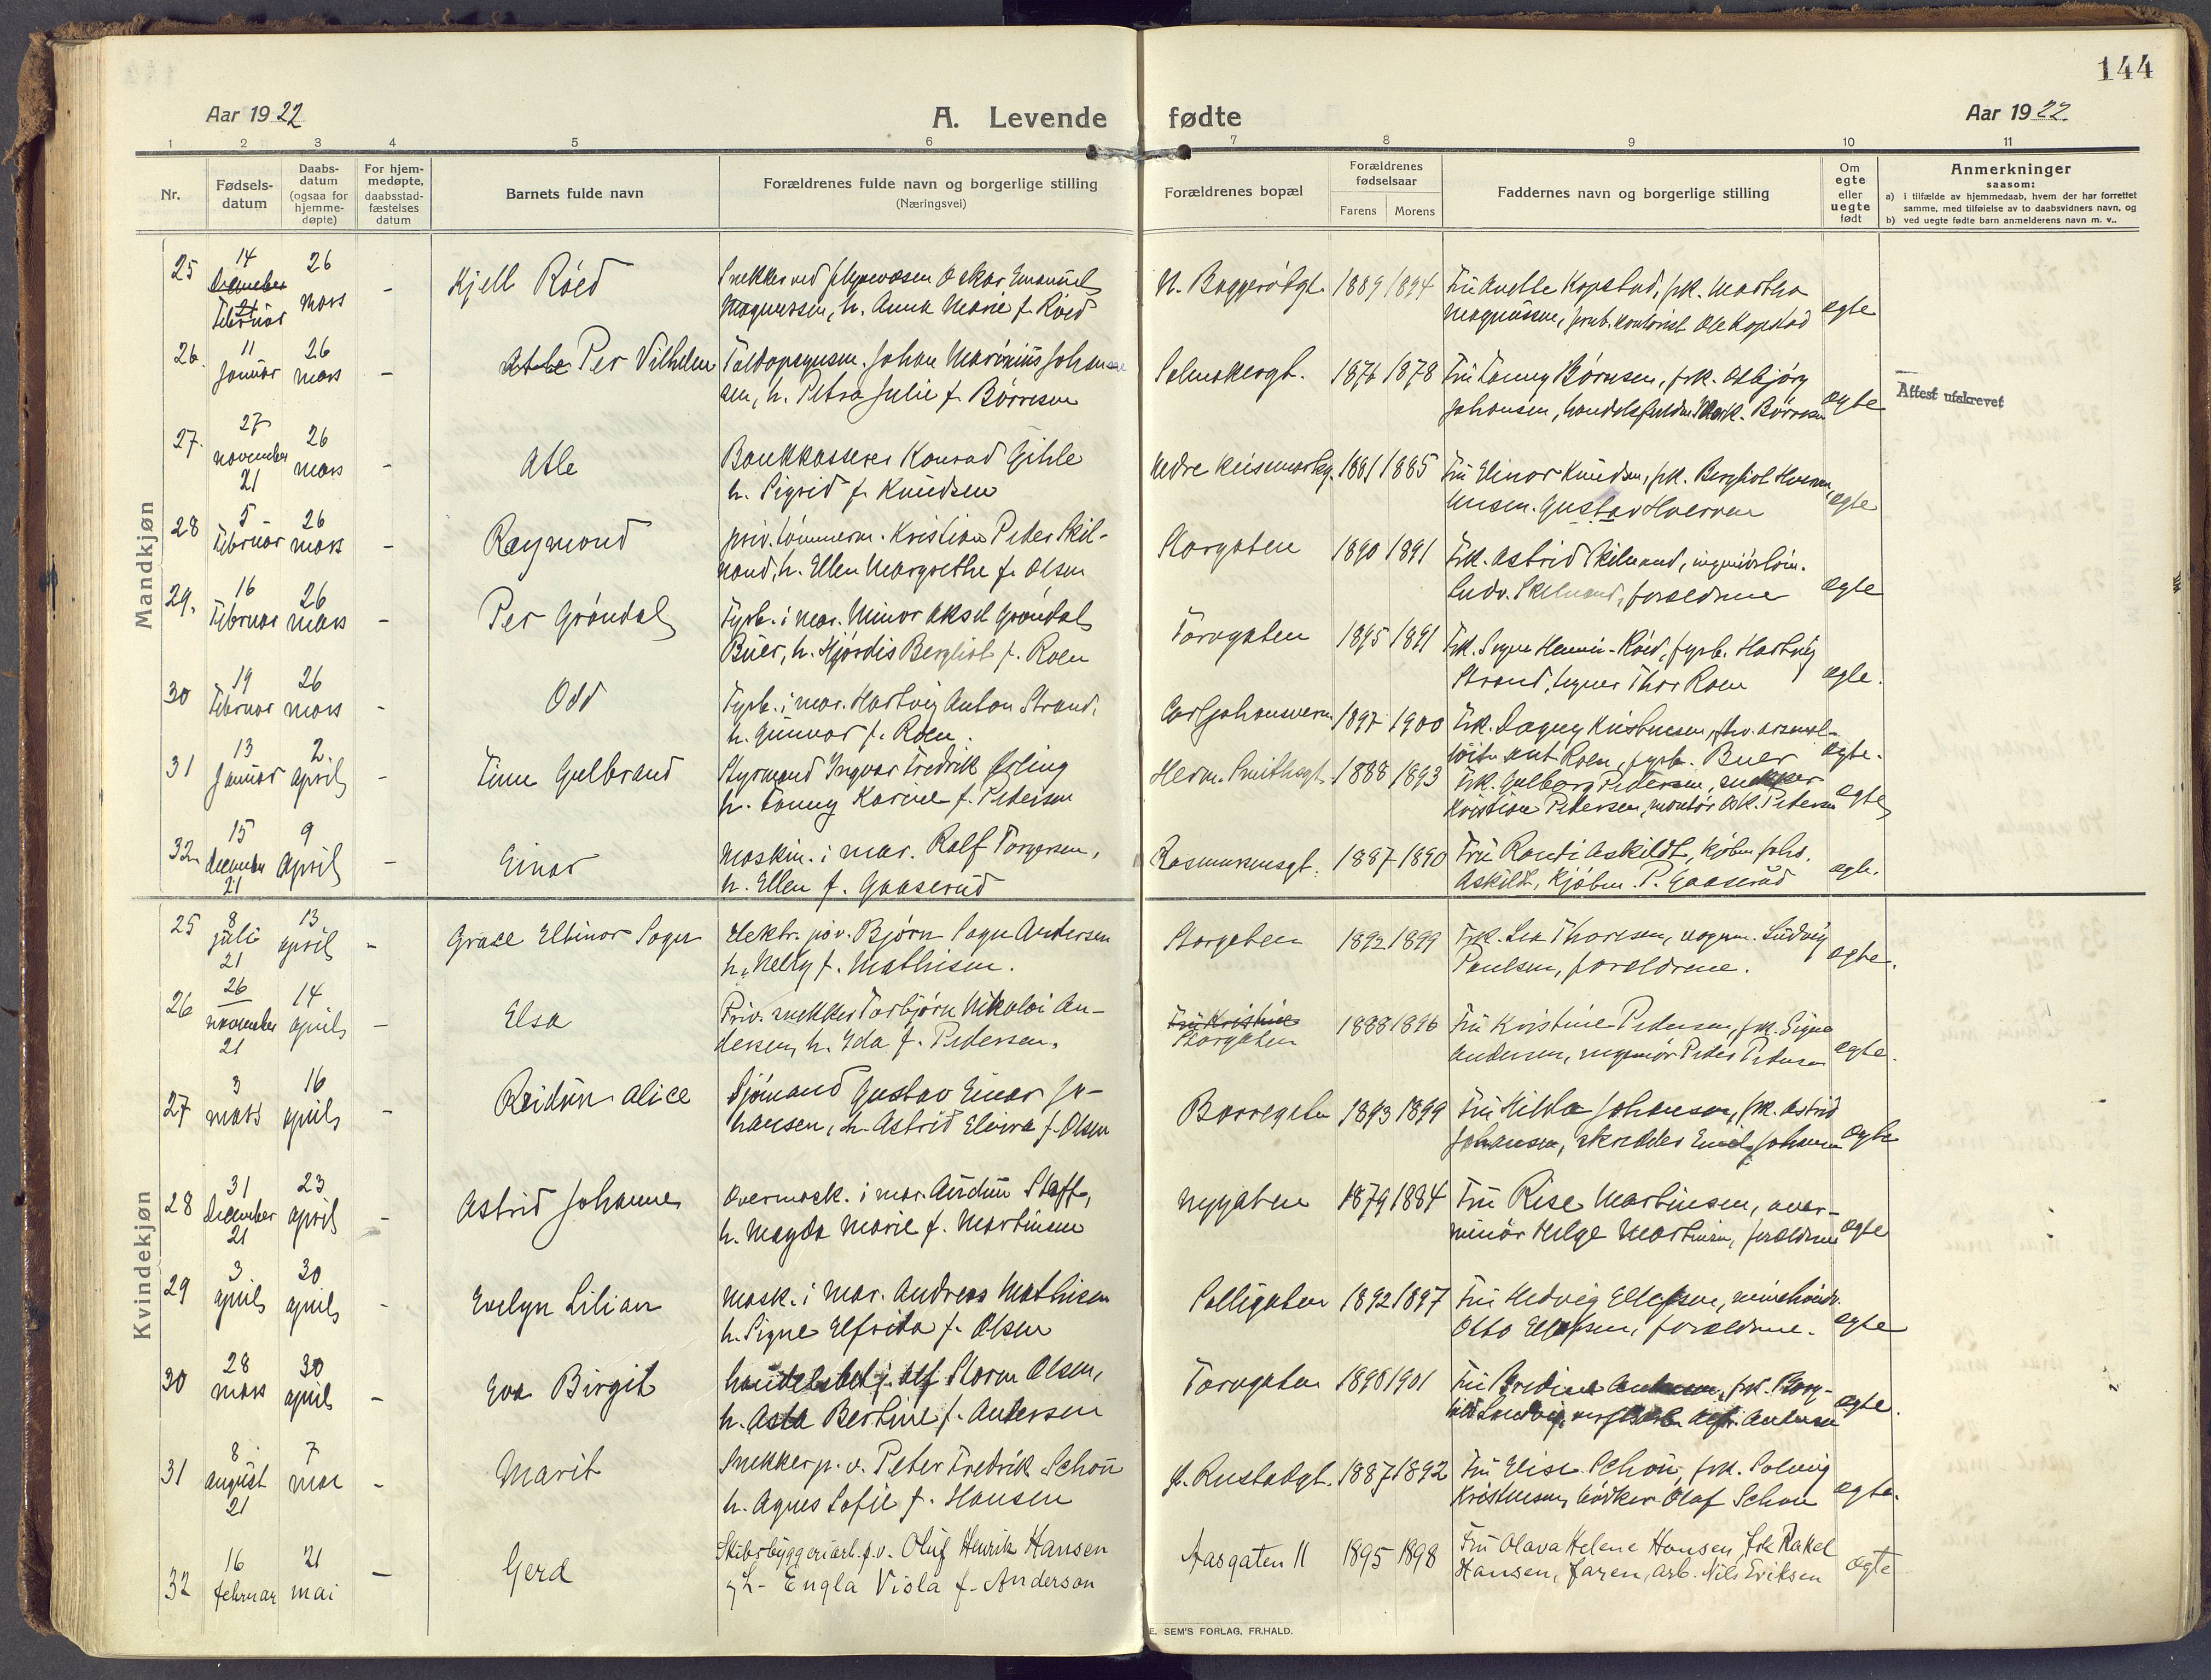 144
Aar 1922
A. Levende fødte
Aar 1922
1 2 3 4 5 6 7 8 9 10 11
Nr.
Fødsels-
datum
Daabs-
datum
(ogsaa for
hjemme-
døpte)
For hjem-
medøpte,
daabsstad-
fæstelses
datum
Barnets fulde navn
Forældrenes fulde navn og borgerlige stilling
(Næringsvei)
Forældrenes bopæl
Forældrenes
fødselsaar
Farens Morens
Faddernes navn og borgerlige stilling
Om
egte
eller
uegte
født
Anmerkninger
saasom:
a) i tilfælde av hjemmedaab, hvem der har forrettet
samme, med tilføielse av to daabsvidners navn, og
b) ved uegte fødte barn anmelderens navn m. v..
Mandkjøn
25 14 Februar 26 mars - Kjell Röed
Snekker ved Oskar Emanuel
Magnussen, h. Anna Marie f. Röed
N. Baggerødgt. 1889 1894
Fru Anette Kopstad, frk. Martha
Magnussen, kontorist Ole Kopstad
egte
26. 11 Januar 26 mars - Per Vilhelm
Johan Marinius Johan
sen, h. Petra Julie f. Börresen
1876 1878
Fru Fanny Börresen, frk. Asbjörg
Johansen, Börresen
egte
Attest utskrevet
27. 27 november 21 26 mars - Atle
Bankkasserer Konrad Gihle
h. Sigrid f. Knudsen
Nedre 1881 1885
Fru Elinor Knudsen, frk. Bergliot Hverven,
Gustav Hverven
egte
28 5 Februar 26 mars - Raymond
priv. tømmerm. Kristian Peder Skil-
nand, h. Ellen Margrethe f. Olsen
Storgaten 1890 1891
Frk. Astrid Skilnand,
Ludv. Skilnand, forældrene
egte
29. 16 Februar 26 mars - Per Gröndal
Fyrb. i mar. Minor Aksel Gröndal
Buer, h. Hjördis Bergliot f. Roen
Torvgaten 1895 1891
Frk. Signe fyrb. Hartvig
Strand, Thor Roen
egte.
30 19 Februar 26 mars - Odd
Fyrb. i mar. Hartvig Anton Strand,
h. Gunvor f. Roen.
Carljohansvern 1897 1900
Frk. Dagny Kristensen,
Roen, fyrb. Buer
egte.
31 13 Januar 2. april - Finn Gulbrand
Styrmand Ingvar Fredrik Erling
h. Fanny Karine f. Pedersen
Herm. Smithsgt. 1888 1893
Frk. Gulborg Pedersen, snekker
Kristian Pedersen, montör Osk. Pedersen
egte
32 15 december 21 9 April - Einar
Maskin. i mar. Rolf Torgersen,
h. Ellen f. Gaaserud
Rasmussensgt. 1887 1890
Fru Randi Askildt, kjöbm. Johs.
Askildt, kjöbm. P. Gaaserud
egte.
Kvindekjøn
25 8 juli 21 13 april - Grace Ellinor Sogn
elektr. Björn Sogn Andersen
h. Nelly f. Mathisen.
Storgaten 1892 1899
Frk. Lea Thoresen, Ludvig
Paulsen, forældrene.
egte.
26 26 november 21 14 april - Elsa
Priv. snekker Torbjörn Nikolai An-
dersen, h. Ida f. Pedersen.
Fru Kristine
Storgaten 1888 1896
Fru Kristine Pedersen, frk. Signe
Andersen, Peder Pedersen
egte.
27 3 mars 16 april - Reidun Alice
Sjömand Gustav Einar Jo-
hansen, h. Astrid Elvira f. Olsen
Borregaten 1893 1899
Fru Hilda Johansen, frk. Astrid
Johansen, skrædder Emil Johansen
egte
28 31 December 21 23 april - Astrid Johanne
Overmask. i mar. Audun Staff,
h. Magda Marie f. Martinsen
Nygaten 1879 1884
Fru Rise Martinsen, over-
minör Helge Martinsen, forældrene
egte
29 3 april 30 april - Evelyn Lilian
Mask. i mar. Andreas Mathisen
h. Signe Elfrida f. Olsen
Solligaten 1892 1897
Fru Hedvig Ellefsen,
Otto Ellefsen, forældrene.
egte
30 28 mars 30 april - Eva Birgit
handelsbetj. Alf Storm Olsen,
h. Asta Bertine f. Andersen
Torvgaten 1898 1901
Fru Andersen, frk. Borg-
Alfr. Andersen
egte.
31 8 august 21 7 mai - Marit
Snekker p. v. Peter Fredrik Schou
h. Agnes Sofie f. Hansen
1887 1892
Fru Elise Schou, frk. Solveig
Kristensen, bödker Olaf Schou
egte.
32 16 februar 21 mai - Gerd
Skibsbyggeriarb. p.v. Oluf Henrik Hansen
og h. Engla Viola f. Anderson
Aasgaten 11 1895 1898
Fru Olava Helene Hansen, Frk Rakel
Hansen, faren, arb. Nils Eriksen
egte
E. SEM'S FORLAG, FR.HALD.